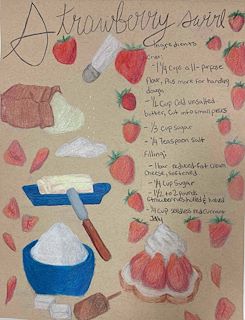 Strawberry swirl
Ingredients
Crust:
- 1 1/4 Cups all-purpose
flour, Plus more for handling
dough
- 1/2 Cup Cold unsalted
butter, Cut into small pieces
- 1/3 cup sugar
- 1/4 Teaspoon Salt
Filling:
- 1 bar reduced-fat cream
Cheese, softened
- 1/4 Cup Sugar
- 1 1/2 to 2 Pounds
Strawberries, hulled & halved
- 1/4 Cup seedless red Currant
Jelly